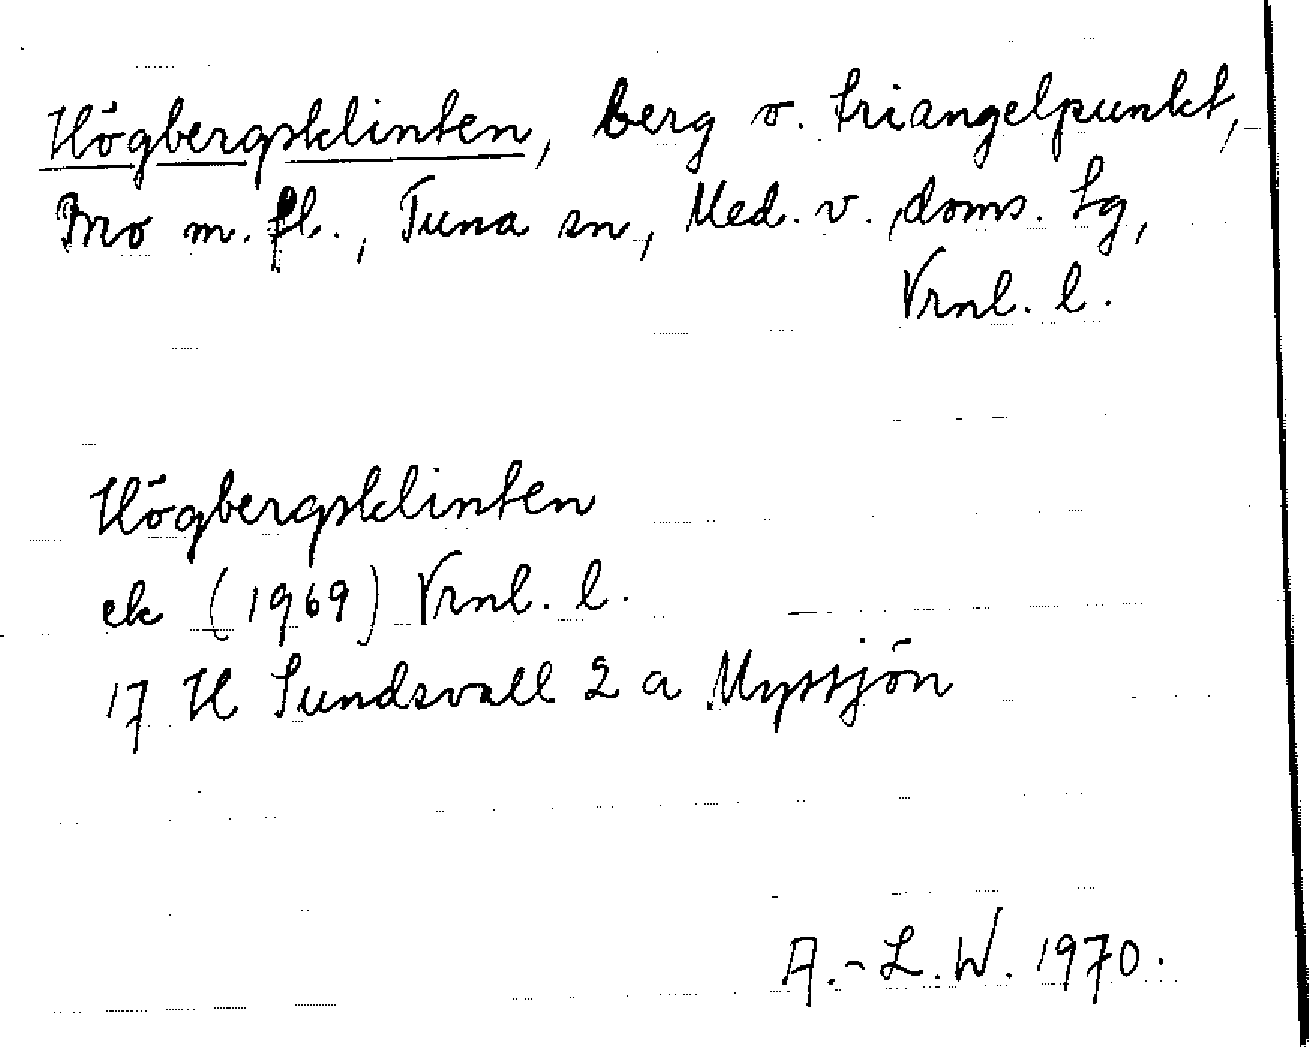 Högbergsklinten, berg o. triangelpunkt,
Mo m. fl., Tuna sn, Med. v. doms. tg,
Vrnl. l.
Högbergsklinten
ek (1969) Vrnl. l.
17 H Sundsvall 2 a Myssjön
A.-L.W. 1970.